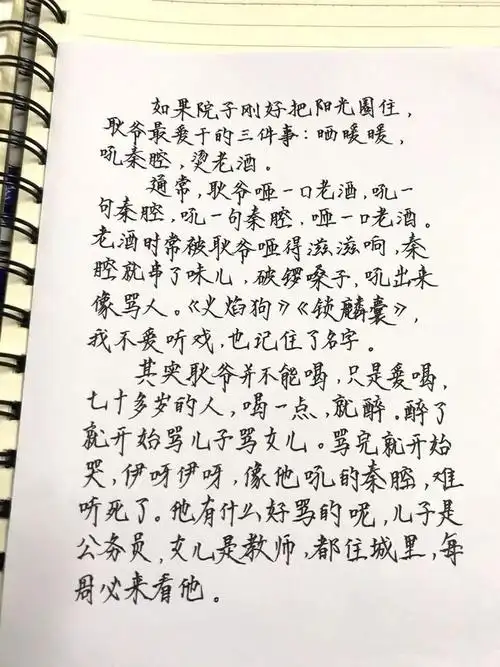 如果院子刚好把阳光圈住，
耿爷最爱干的三件事：晒暖暖，
吼秦腔，烫老酒。
通常，耿爷咂一口老酒，吼一
句秦腔，吼一句秦腔，咂一口老酒。
老酒时常被耿爷咂得滋滋响，秦
腔就串了味儿，破锣嗓子，吼出来
像骂人。《火焰狗》《锁麟囊》，
我不爱听戏，也记住了名字。
其实耿爷并不能喝，只是爱喝，
七十多岁的人，喝一点，就醉。醉了
就开始骂儿子骂女儿。骂完就开始
哭，伊呀伊呀，像他吼的秦腔，难
听死了。他有什么好骂的呢，儿子是
公务员，女儿是教师，都住城里，每
周必来看他。